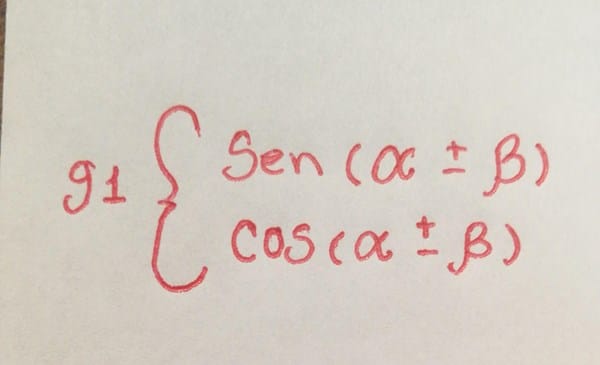 g1 { Sen (α ± β)
cos (α ± β)